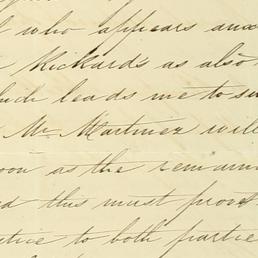 who appears anx
Rickards as also
hich leads me to su
Mr. Martinez will
oon as the remain
d this must prove
tice to both partie